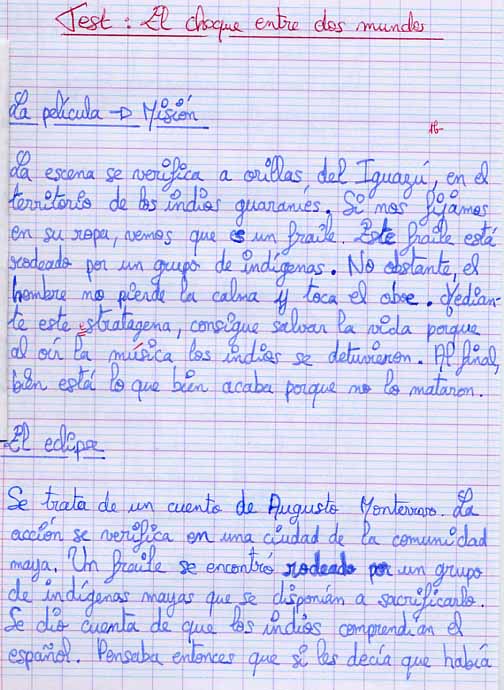 Test: El choque entre dos mundos
La película → Misión
16
La escena se verifica a orillas del Iguazú, en el
territorio de los indios guaraníes. Si nos fijamos
en su ropa, vemos que es un fraile. Este fraile está
rodeado por un grupo de indígenas. No obstante, el
hombre no pierde la calma y toca el oboe. Median-
te este estratagena, consigue salvar la vida porque
al oír la música los indios se detuvieron. Al final,
bien está lo que bien acaba porque no lo mataron.
El eclipse
Se trata de un cuento de Augusto Monterroso. La
acción se verifica en una ciudad de la comunidad
maya. Un fraile se encontró rodeado por un grupo
de indígenas mayas que se disponían a sacrificarlo.
Se dio cuenta de que los indios comprendían el
español. Pensaba entonces que si les decía que había